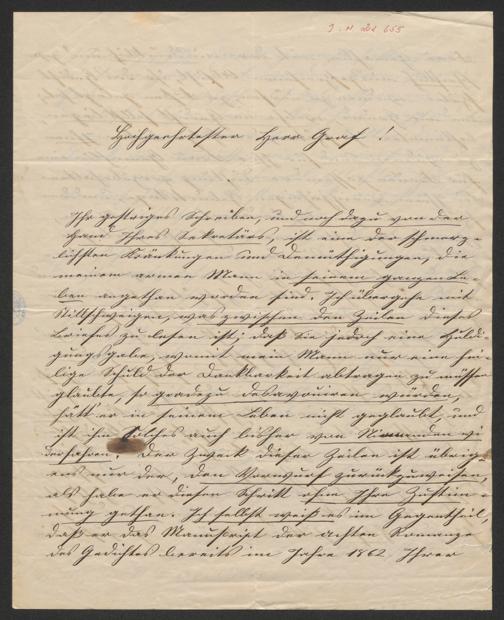 I. N 202 655
Hochgeehrtester Herr Graf!
Ihr gestriges Schreiben, und noch dazu von der
Hand Ihres Sekretärs, ist eine der schmerz-
lichsten Kränkungen und Demüthigungen, die
meinem armen Mann in seinem ganzen Le-
ben angethan worden sind. Ich übergehe mit
Stillschweigen, was zwischen den Zeilen dieses
Briefes zu lesen ist; daß Sie jedoch eine Huldi-
gungsgabe, womit mein Mann nur eine hei-
lige Schuld der Dankbarkeit abtragen zu müssen
glaubte, so geradezu desavouiren würden,
hätt' er in seinem Leben nicht geglaubt, und
ist ihm Solches auch bisher von Niemanden wi-
derfahren. Der Zweck dieser Zeilen ist übrig-
ens nur der, den Vorwurf zurückzuweisen,
als habe er diesen Schritt ohne Ihre Zustim-
mung gethan. Ich selbst weiß es im Gegentheil,
daß er das Manuscript der achten Romanze
des Gedichtes bereits im Jahre 1862 Ihrer